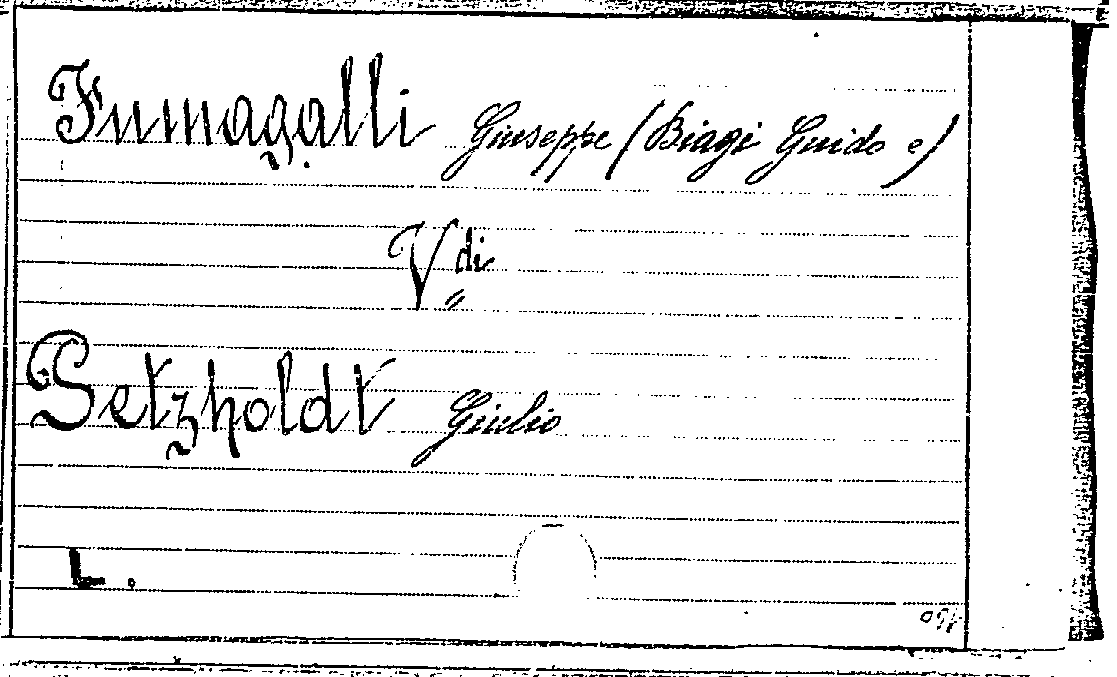 Fumagalli Giuseppe (Biagi Guido e)
Vdi
Petzholdt Giulio
L.